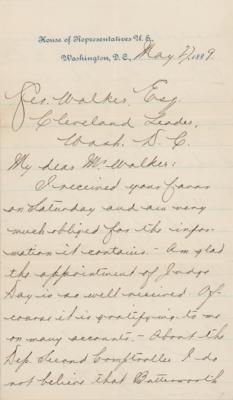 House of Representatives U. S.,
Washington, D. C., May 1889.
Geo. Walker, Esq.
Cleveland Leader,
Wash. D. C.
My dear Mr Walker:
I received your favor
on Saturday and am very
much obliged for the infor-
mation it contains. - Am glad
the appointment of Judge
Day is so well received. Of-
course it is gratifying to me
on many accounts. - About the
Dep. Second Comptroller I do
not believe that Butterworth